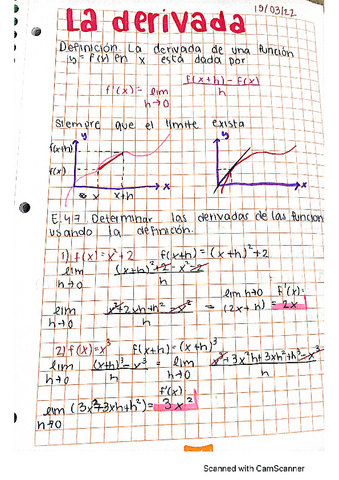 19/03/22
La derivada
Definición La derivada de una función
y=f(x) en x está dada por
f'(x)= lim f(x+h)-f(x)
h→0 h
Siempre que el límite exista
y
f(x+h)
f(x)
x x+h x
y
x
E.47 Determinar las derivadas de las funcion
usando la definición.
1) f(x)=x²+2 f(x+h)=(x+h)²+2
lim (x+h)²+2-x²-2
h→0 h
lim x²+2xh+h²-x² = lim h→0 f'(x):
h→0 h (2x+h)= 2x
2) f(x)=x³ f(x+h)=(x+h)³
lim (x+h)³-x³ = lim x³+3x²h+3xh²+h³-x³
h→0 h h→0 h
f'(x)
lim (3x²+3xh+h²)= 3x²
h→0
Scanned with CamScanner